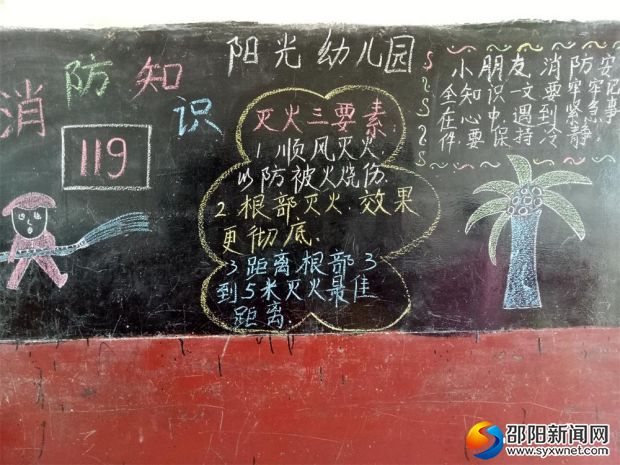 阳光幼儿园
消防知识
119
灭火三要素
1 顺风灭火.
以防被火烧伤.
2 根部灭火.效果
更彻底.
3 距离根部3
到5米灭火最佳
距离.
小朋友 消防安
全知识文要牢记
在心中,遇到紧急事
件,要保持冷静
邵阳新闻网
www.syxwnet.com